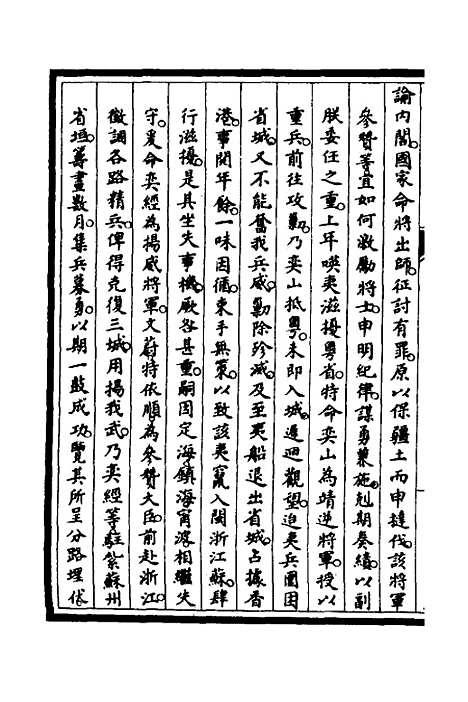 諭內閣國家命將出師征討有罪原以保疆土而申撻伐該將軍
參贊等宜如何激勵將士申明紀律謀勇兼施剋期奏績以副
朕委任之重上年嘆夷滋擾粵省特命奕山為靖逆將軍授以
重兵前往攻勦乃奕山抵粵未即入城遷迴觀望迨夷兵圍困
省城又不能奮我兵威勦除殄滅及至夷船退出省城占據香
港事閱年餘一味因循束手無策以致該夷竄入閩浙江蘇肆
行滋擾是其坐失事機厥咎甚重嗣因定海鎮海甯波相繼失
守爰命奕經為揚威將軍文蔚特依順為參贊大臣前赴浙江
徵調各路精兵俾得克復三城用揚我武乃奕經等駐紮蘇州
省垣籌畫數月集兵募勇以期一鼓成功覽其所呈分路埋伏